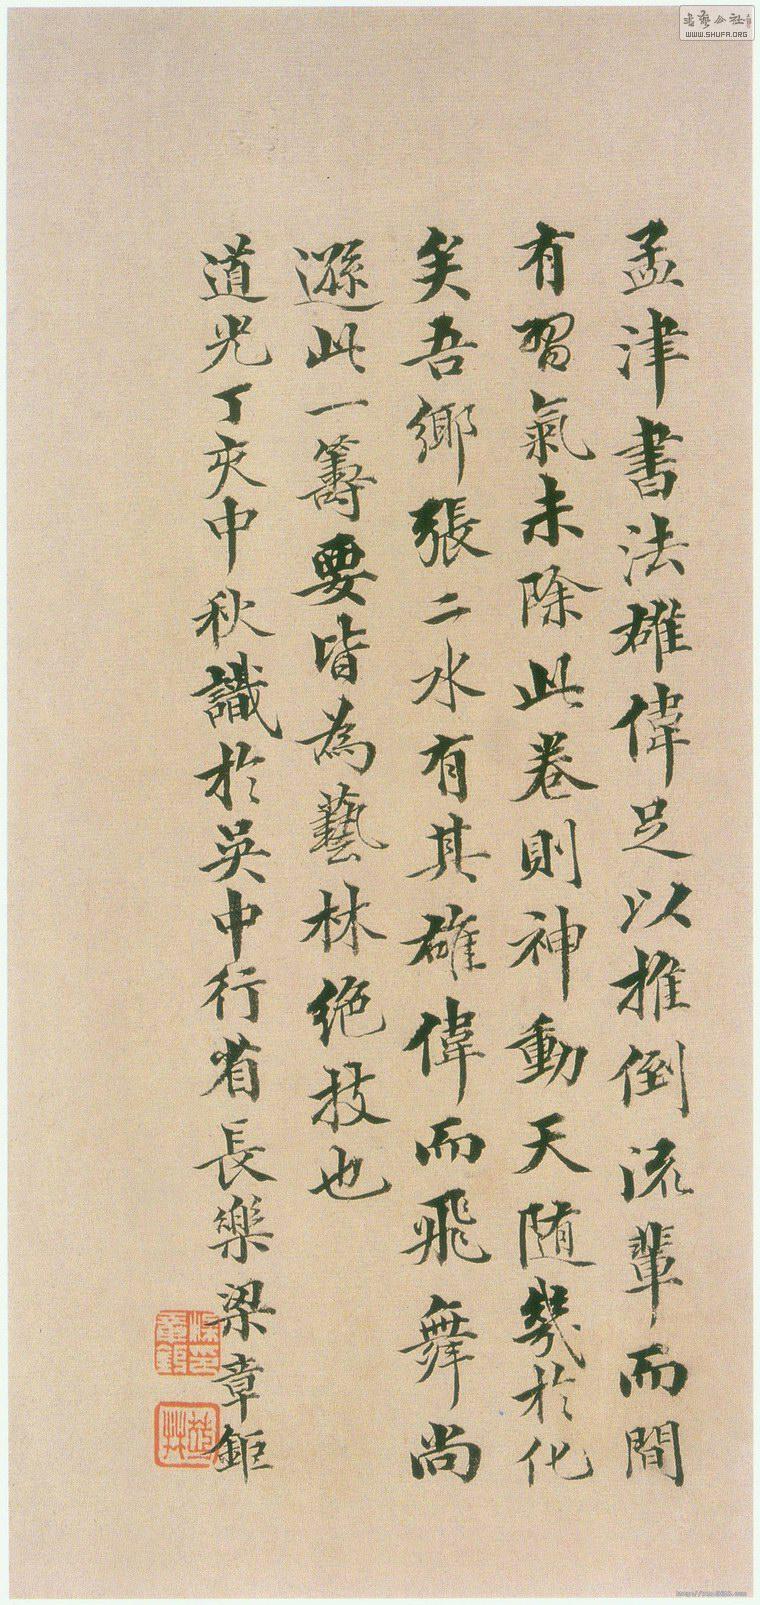 孟津書法雄偉足以推倒流輩而間
有習氣未除此卷則神動天隨幾於化
矣吾鄉張二水有其雄偉而飛舞尚
遜此一籌要皆為藝林絕技也
道光丁亥中秋識於吳中行省長樂梁章鉅
梁章鉅印
WWW.SHUFA.ORG